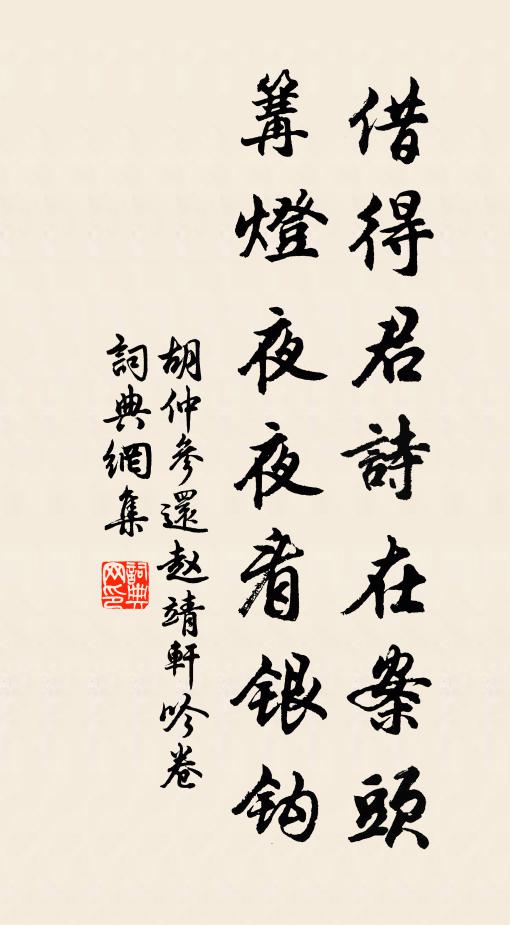 借得君詩在案頭
篝燈夜夜看銀鈎
胡仲參還赵靖軒吟卷
詞典網集
詞典网印